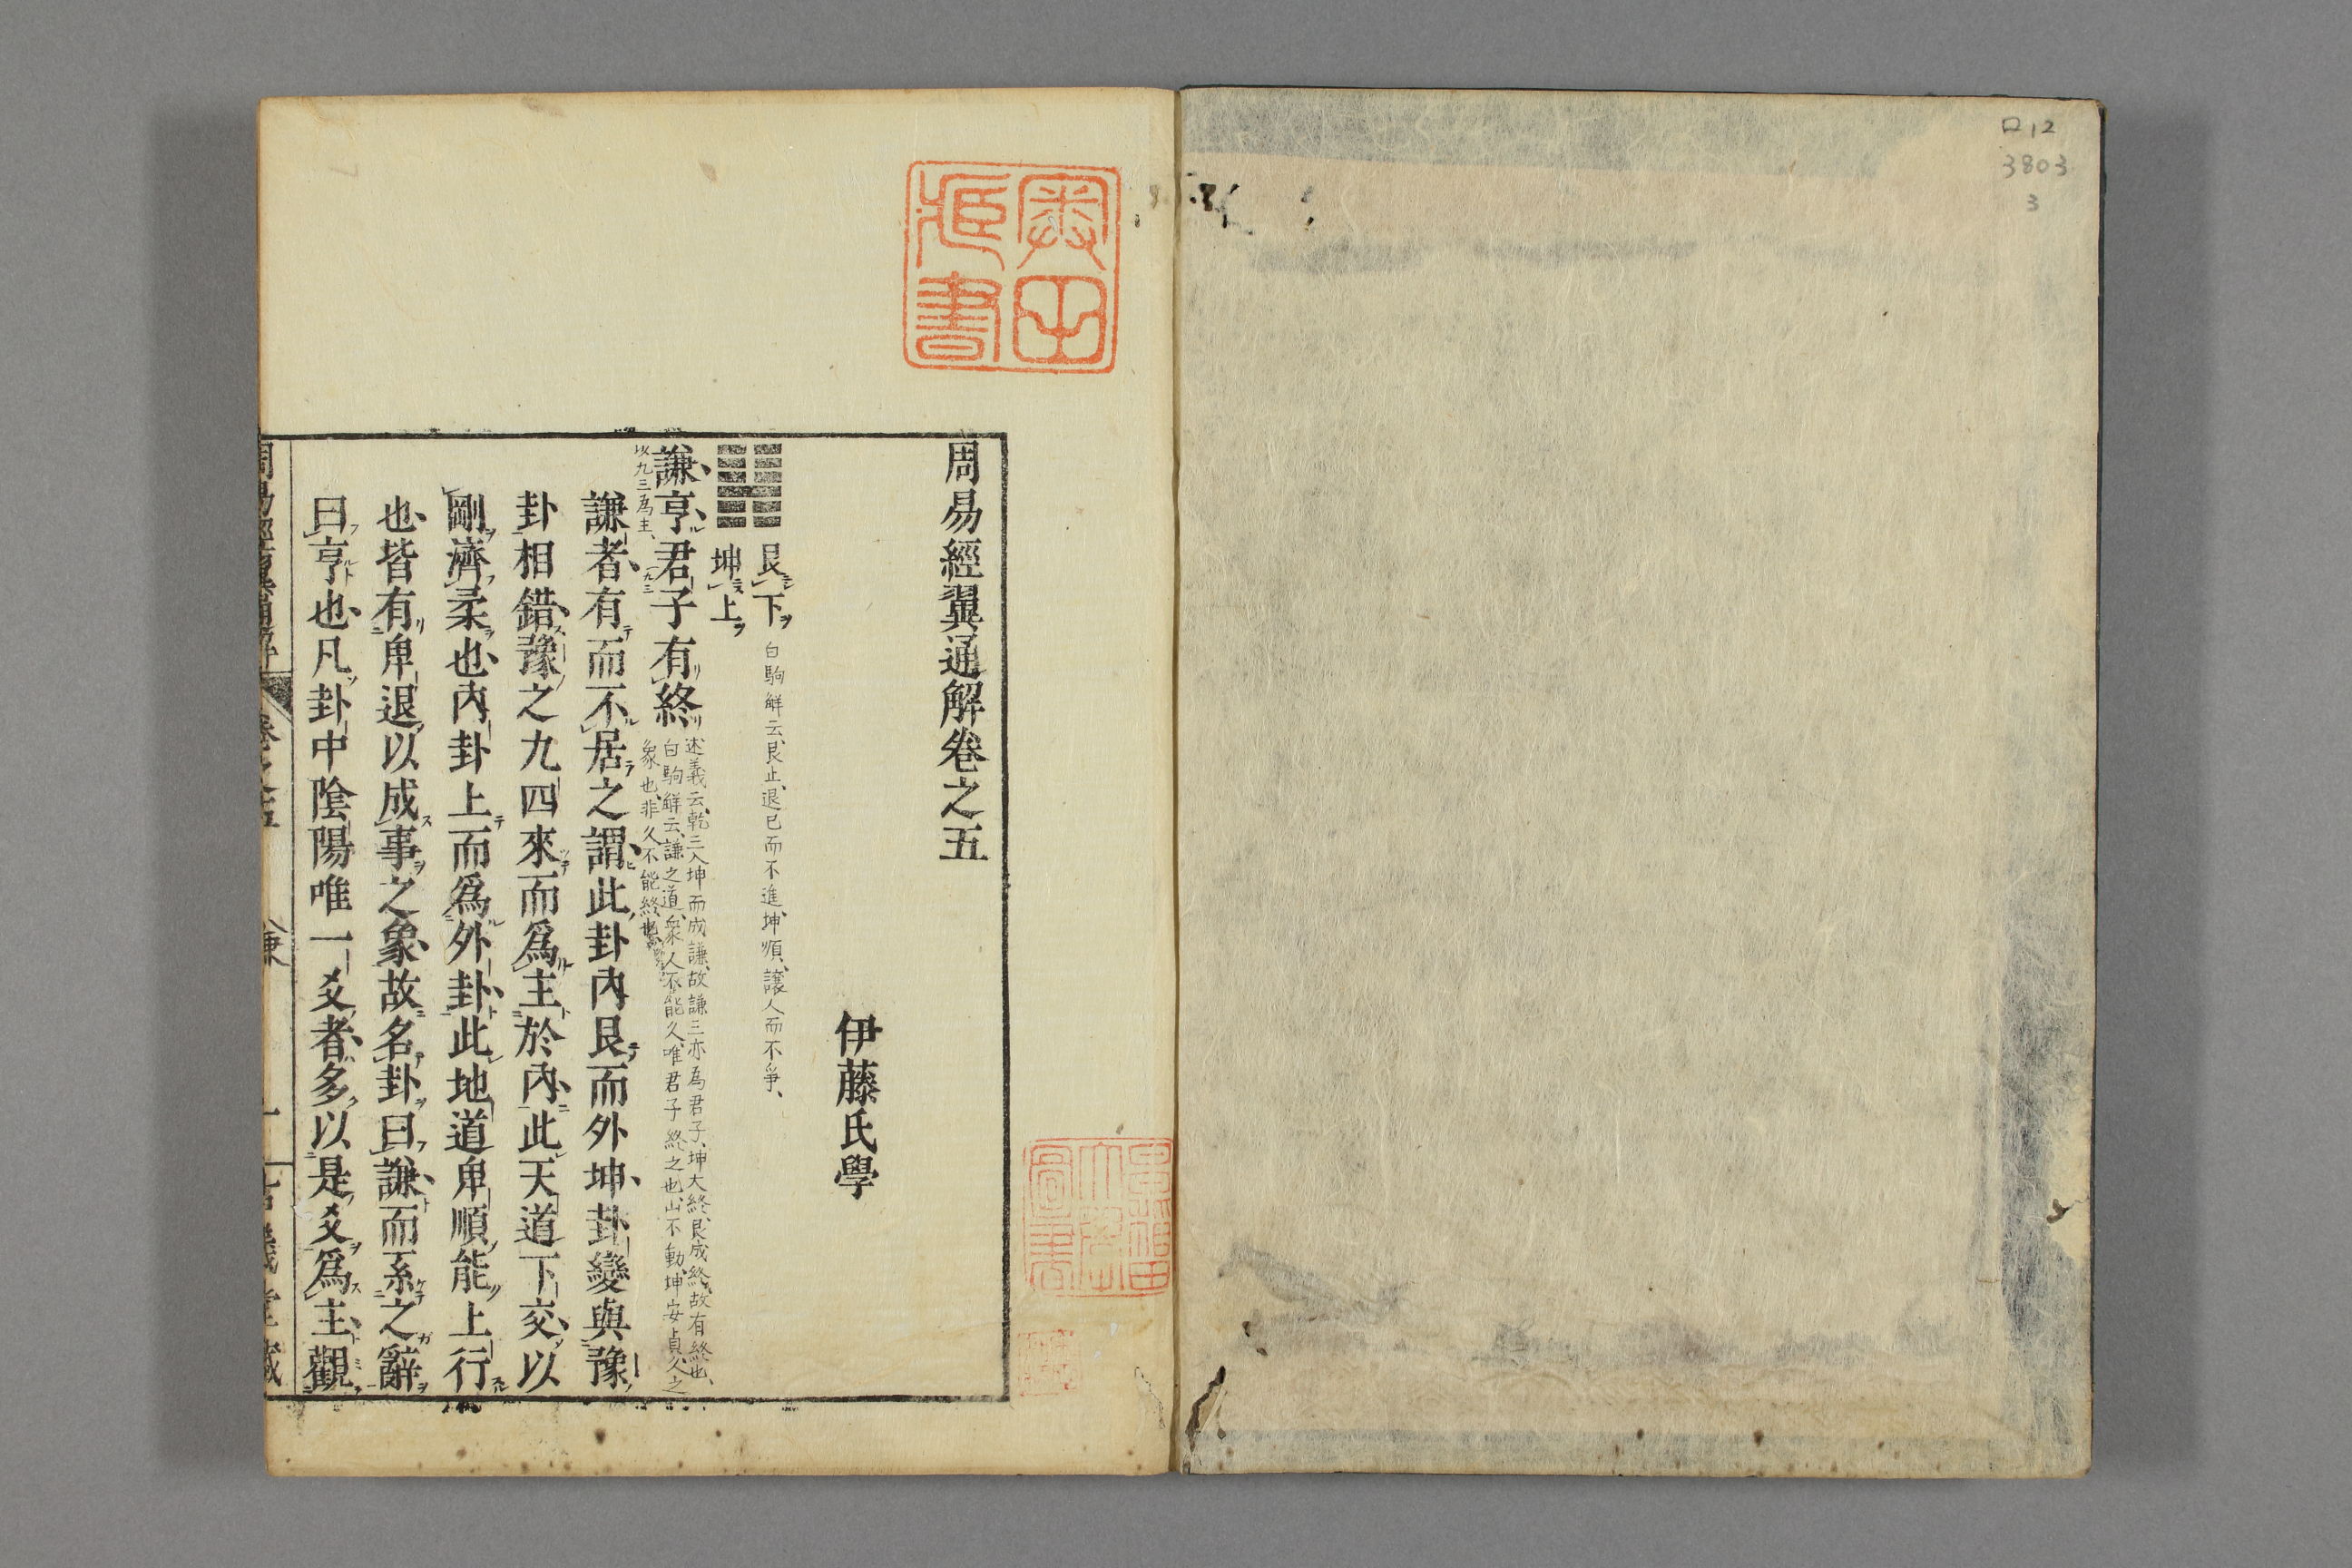 口12
3803
3
周易經翼通解卷之五
伊藤氏學
艮下 白駒解云、艮止、退已而不進、坤順、讓人而不爭、
坤上
謙亨君子有終
述義云、乾三入坤而成謙、故謙三亦為君子、坤大終、艮成終、故有終也、
白駒解云、謙之道、衆人不能久、唯君子終之也、山不動、坤安貞、久之
象也、非久不能終也、
以九三為主、
九三
謙者有而不居之謂此卦內艮而外坤卦變與豫
卦相錯豫之九四來而爲主於內此天道下交以
剛濟柔也內卦上而爲外卦此地道卑順能上行
也皆有卑退以成事之象故名卦曰謙而系之辭
曰亨也凡卦中陰陽唯一爻者多以是爻爲主觀
周易經翼通解 卷之五 謙 一 古義堂藏
奥田
藏書